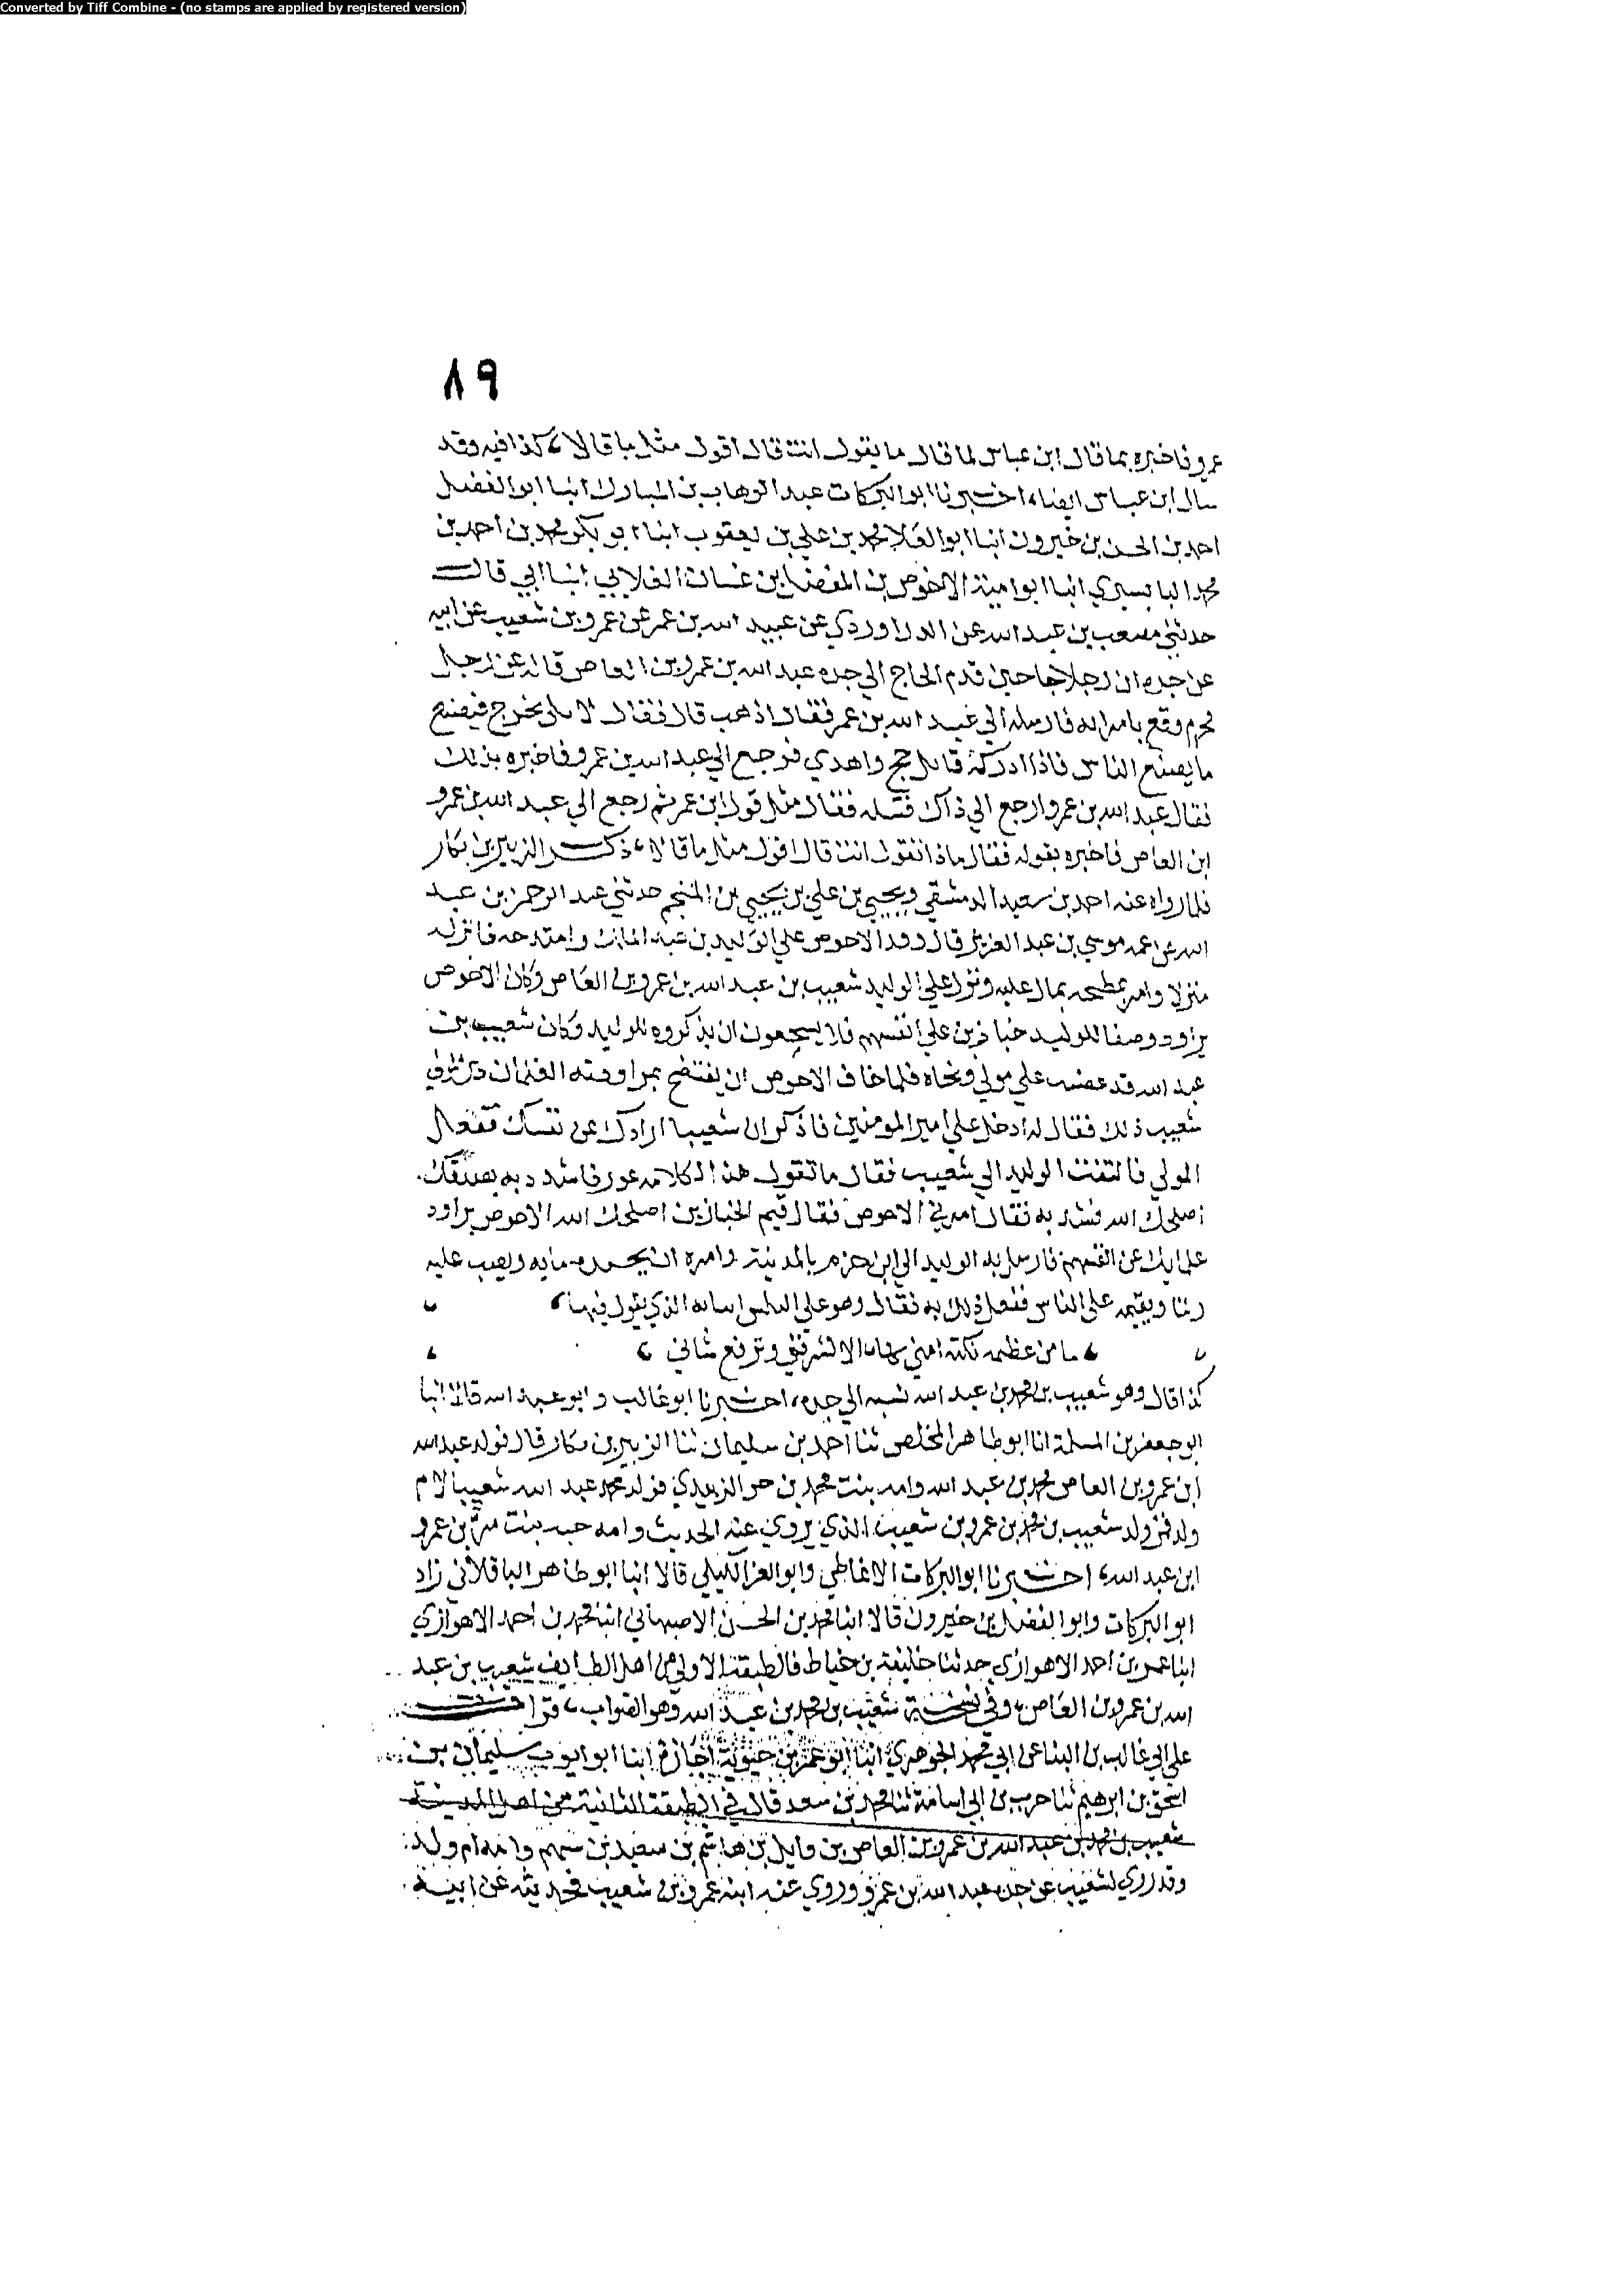 Converted by Tiff Combine - (no stamps are applied by registered version)
٨٩
عمرو فاخبره بما قال ابن عباس لما قال ما يقول انت قال اقول مثل ما قالا، كذا فيه وقد
سال ابن عباس ايضا، اخبرنا ابو البركات عبد الوهاب بن المبارك انبا ابو الفضل
احمد بن الحسن بن خيرون انبا ابو العلا محمد بن علي بن يعقوب انبا ابو بكر محمد بن احمد بن
محمد البابسيري انبا ابو امية الاخوص بن المفضل بن غسان الغلابي انبا ابي قال
حدثني مصعب بن عبد الله عن الدراوردي عن عبيد الله بن عمر عن عمرو بن شعيب عن ابيه
عن جده ان رجلا جا حين قدم الحاج الي جده عبد الله بن عمرو بن العاص قال عن رجل
محرم وقع بامراته فارسله الي عبد الله بن عمر فقال اذهب قال فقال لا بل يخرج فيصنع
ما يصنع الناس فاذا ادركه قابل حج واهدي فرجع الي عبد الله بن عمرو فاخبره بذلك
فقال عبد الله بن عمرو ارجع الي ذاك فسله فقال مثل قول ابن عمر ثم رجع الي عبد الله بن عمرو
ابن العاص فاخبره بقوله فقال ماذا تقول انت قال اقول مثل ما قالا، ذكر الزبير بن بكار
فلما رواه عنه احمد بن سعيد الدمشقي ويحيي بن علي بن يحيي بن المنجم حدثني عبد الرحمن بن عبد
الله عن عمه موسي بن عبد العزيز قال وفد الاحوص علي الوليد بن عبد الملك وامتدحه فانزله
منزلا وامر بمطبخه يمال عليه ونزل علي الوليد شعيب بن عبد الله بن عمرو بن العاص وكان الاخوص
يراود وصفا للوليد خبازين علي انفسهم فلا يجعون ان يذكروه للوليد وكان شعيب بن
عبد الله قد غضب علي مولي ونحاه فلما خاف الاحوص ان يفتضح بمراودته الغلمان
شعيب ذلك فقال له ادخل علي امير المومنين فاذكر ان شعيبا ارادك عن نفسك ففعل
المولي فالتفت الوليد الي شعيب فقال ما تقول هذا لكلامه غور فاشدد به يصدقك
اصلحك الله فشد به فقال امرني الاحوص فقال قيم الخبازين اصلحك الله الاحوص يراود
غلمانك عن انفسهم فارسل به الوليد الي ابن حزم بالمدينة وامره ان يجلده مايه ويصب عليه
زيتا ويقيمه علي الناس ففعل ذلك به فقال وهو علي البلس ابياته الذي يقول فيها،
ما من عظيمه نكبة امني بها الا تشرفني وترفع شاني
كذا قال وهو شعيب بن محمد بن عبد الله نسبه الي جده، اخبرنا ابو غالب وابو عبد الله قالا انبا
ابو جعفر بن المسلمة انا ابو طاهر المخلص ثنا احمد بن سليمان ثنا الزبير بن بكار قال فولد عبد الله
ابن عمرو بن العاص محمد بن عبد الله وامه بنت محمد بن الزبيدي فولد محمد بن عبد الله شعيبا لام
ولد فمن ولد شعيب بن محمد بن عمرو بن شعيب الذي يروي عنه الحديث وامه حبيبه بنت مرة بن عمرو
ابن عبد الله، اخبرنا ابو البركات الانماطي وابو العز الكيلي قالا انبا ابو طاهر الباقلاني زاد
ابو البركات وابو الفضل بن خيرون قالا انبا محمد بن الحسن الاصبهاني انبا محمد بن احمد الاهوازي
انبا عمر بن احمد الاهوازي حدثنا خليفة بن خياط قال الطبقة الاولي من اهل الطايف شعيب بن عبد
الله بن عمرو بن العاص، وفي نسخة شعيب بن محمد بن عبد الله وهو الصواب، قرات
علي ابي غالب بن البنا عن ابي محمد الجوهري انبا ابو عمر بن حيوية اجازة انبا ابو ايوب سليمان بن
اسحق بن ابرهيم ثنا حرب بن ابي اسامة ثنا محمد بن سعد قال في الطبقة الثانية من اهل المدينة
شعيب بن محمد بن عبد الله بن عمرو بن العاص بن وايل بن هاشم بن سعيد بن سهم وامه ام ولد
وقد روي شعيب عن جده عبد الله بن عمرو وروي عنه ابنه عمرو بن شعيب فحديثه عن ابيه